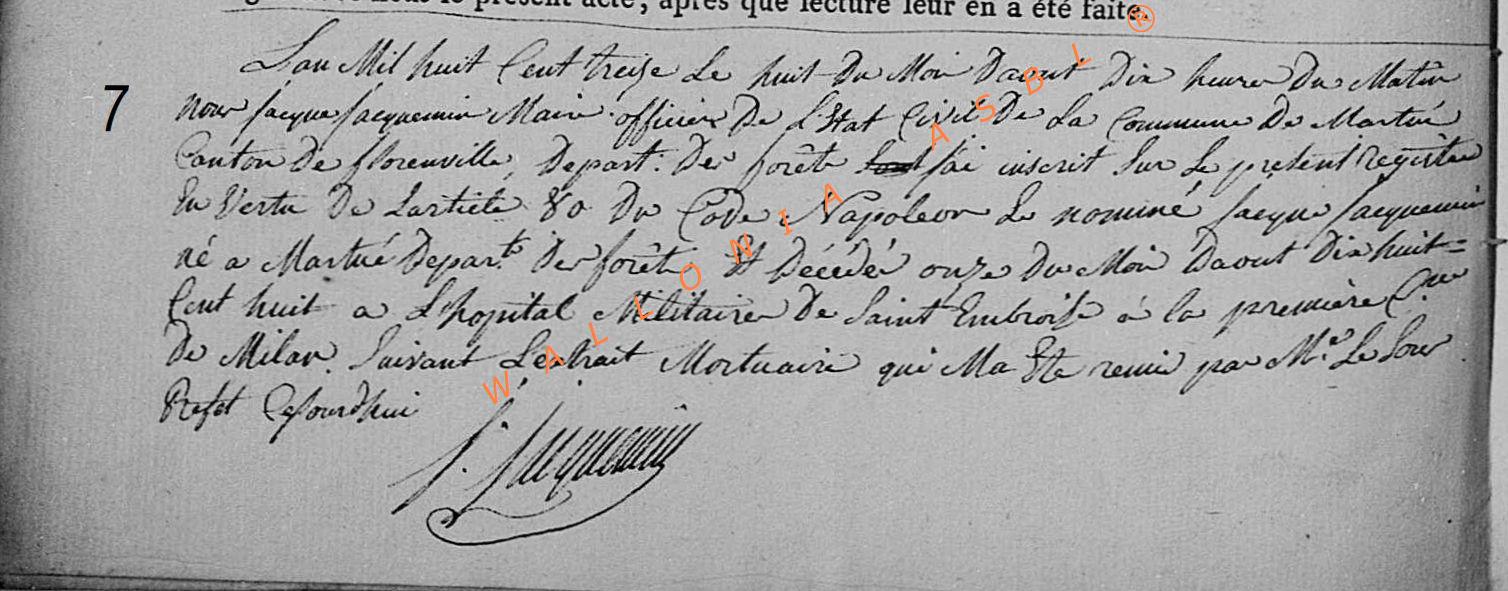 nous le présent acte, après que lecture leur en a été faite.
7
L'an Mil huit Cent treize Le huit Du Moi Daout Dix heures Du Matin
nous Jacque Jacquemin Maire officier De L'Etat Civil De La Commune De Martué
Canton De florenville, Depart. Des forêts J'ai inscrit Sur Le présent Registre
En Vertu De Larticle 80 Du Code Napoleon Le nommé Jacque Jacquemin
né a Martué Depart.t Des forêts Et Décédé onze Du Moi Daout Dix huit=
Cent huit a L'hopital Militaire De Saint Embroise à la première
De Milan. Suivant L'extrait Mortuaire qui Ma Ete remis par Mr. Le Sous
Prefet Cejourd'hui
J. Jacquemin
WALLONIA ASBL ®